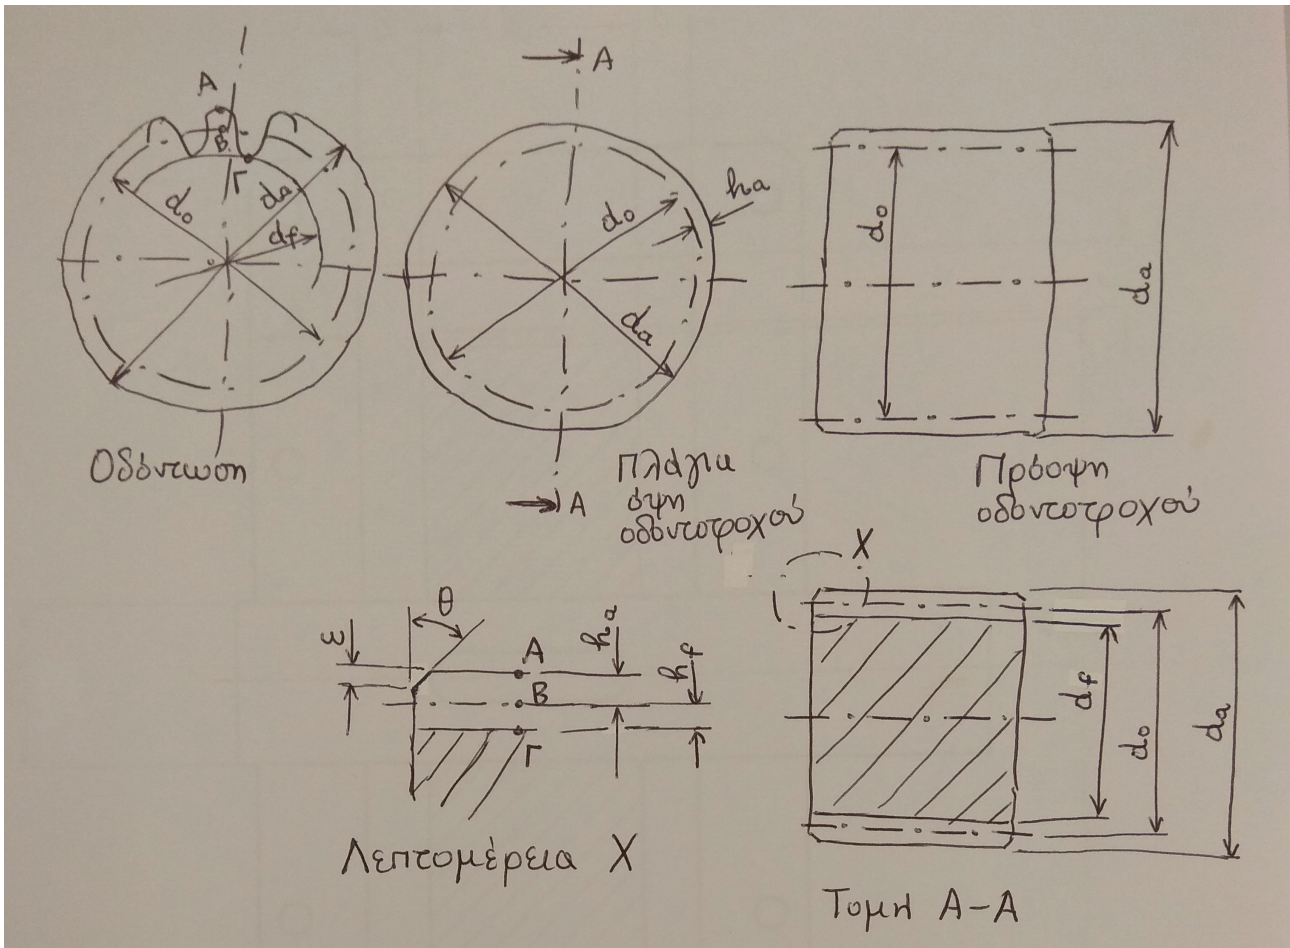 A
B
Γ
do
da
df
Οδόντωση
A
do
da
ha
A
Πλάγια
όψη
οδοντοτροχού
do
da
Πρόοψη
οδοντοτροχού
ε
θ
A
B
Γ
ha
hf
Λεπτομέρεια X
X
df
do
da
Τομή A-A